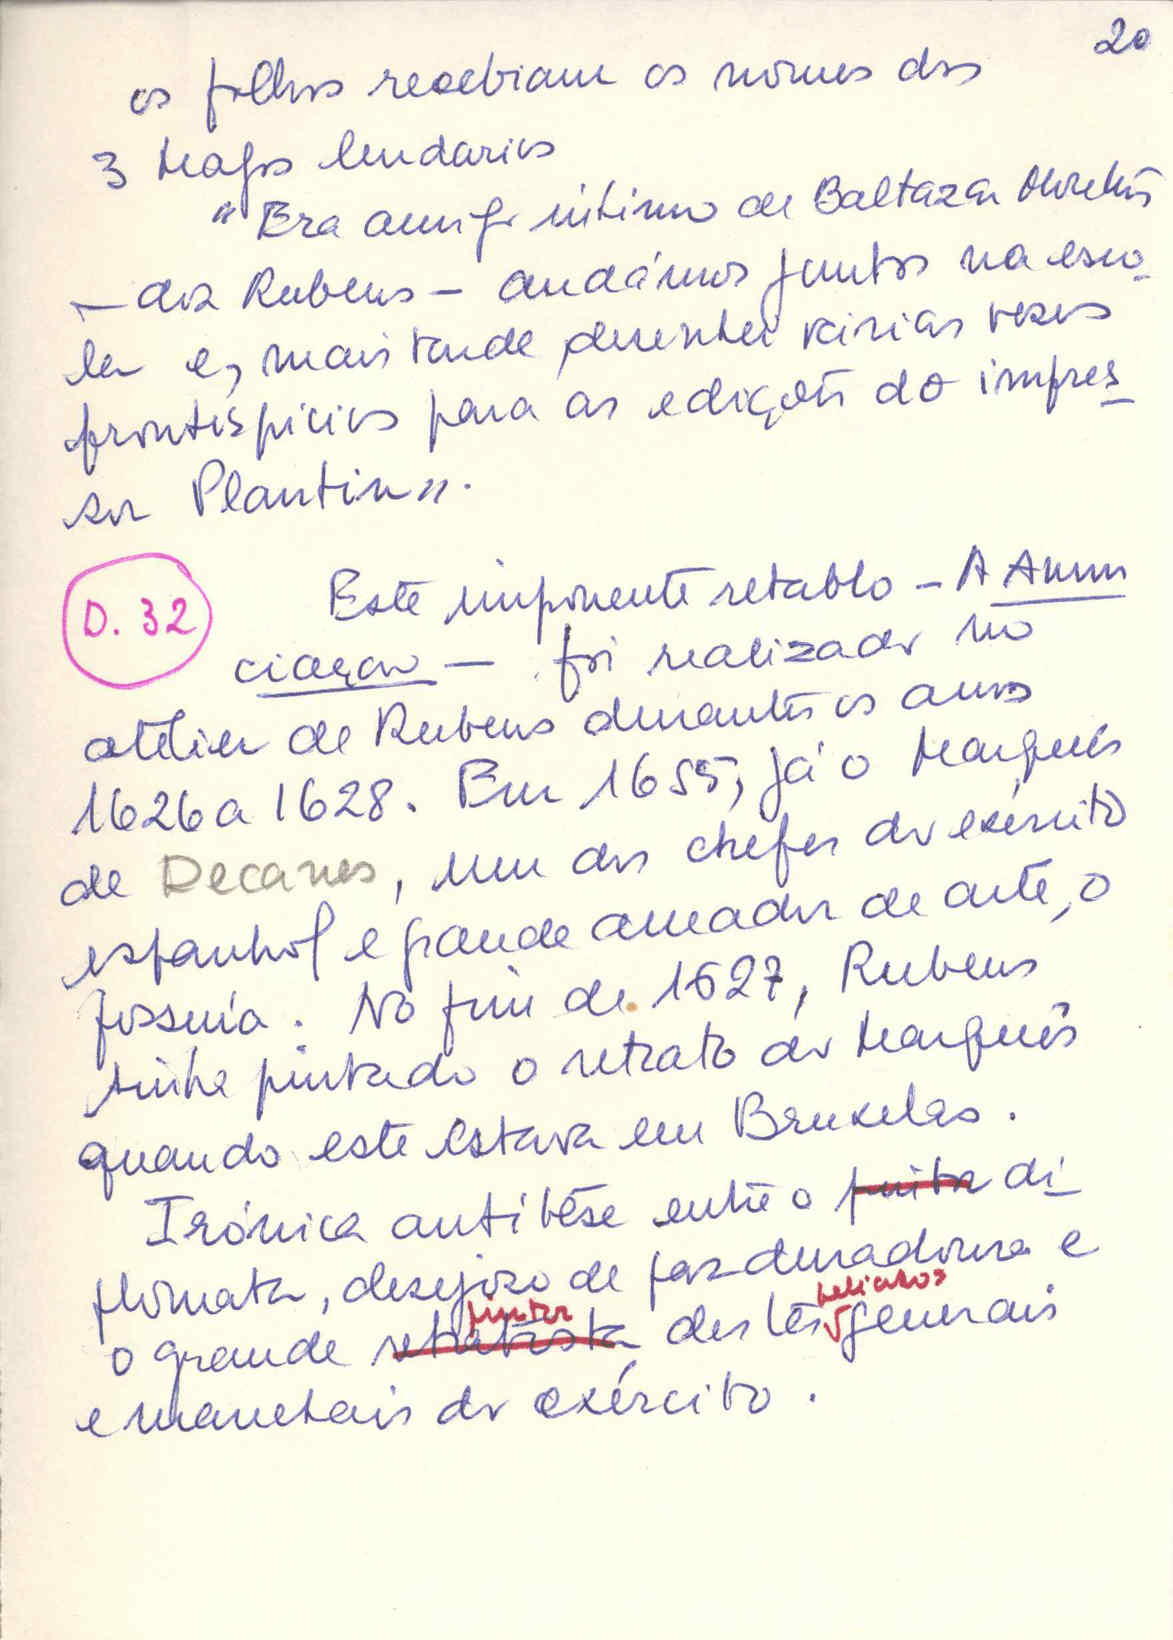 20
os filhos recebiam os nomes dos
3 Magos lendarios
"Era amigo intimo de Baltazar Moretus
– diz Rubens – andámos juntos na esco-
la e, mais tarde desenhei várias vezes
frontispicios para as edições do impres-
sor Plantin".
D. 32
Este imponente retablo – A Anun
ciação – foi realizado no
atelier de Rubens durante os anos
1626 a 1628. Em 1655, já o Marquês
de Decanes, um dos chefes do exército
espanhol e grande amador de arte, o
possuia. No fim de 1627, Rubens
tinha pintado o retrato do Marquês
quando este estava em Bruxelas.
Irónica antitêse entre o pinta di-
plomata, desejoso de paz duradoura e
pintor belicosos
o grande retratista destes generais
e marechais do exército.